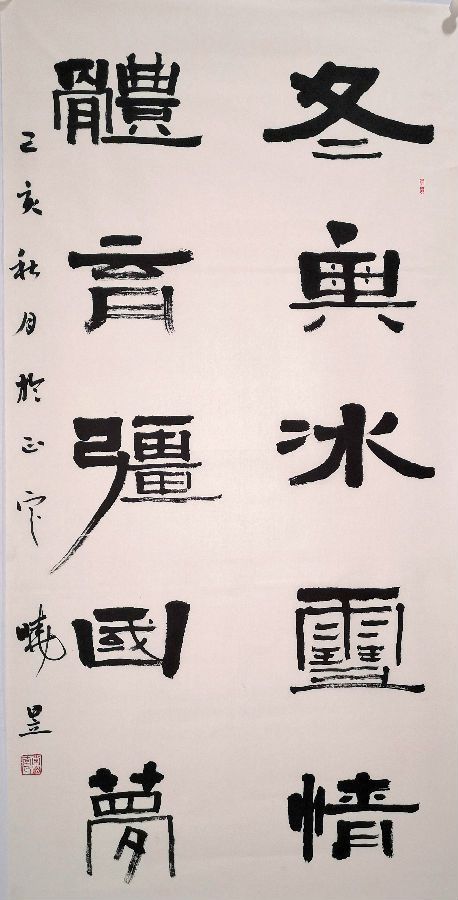 冬奥冰雪情
體育彊國夢
己亥秋月於正定 曉昱